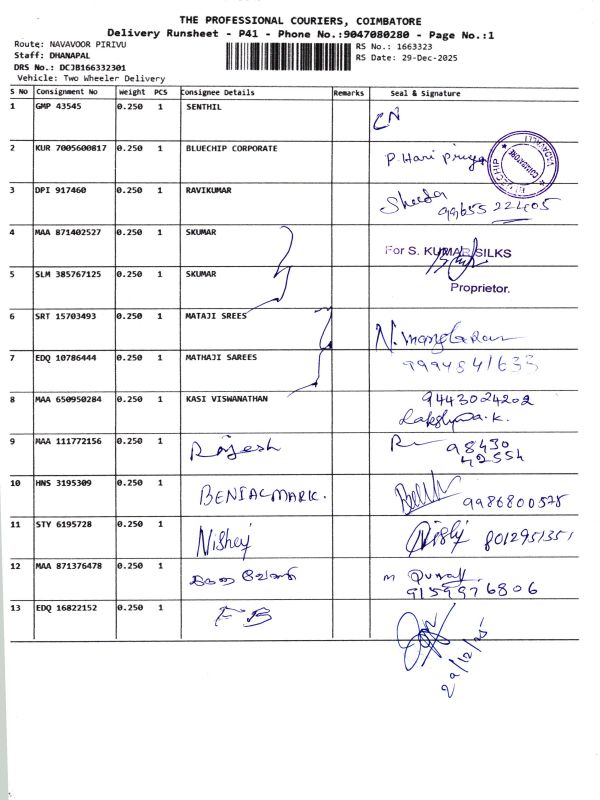 THE PROFESSIONAL COURIERS, COIMBATORE
Delivery Runsheet - P41 - Phone No.:9047080280 - Page No.:1
Route: NAVAVOOR PIRIVU
Staff: DHANAPAL
DRS No.: DCJB166332301
Vehicle: Two Wheeler Delivery
RS No.: 1663323
RS Date: 29-Dec-2025
S No Consignment No Weight PCS Consignee Details Remarks Seal & Signature
1 GMP 43545 0.250 1 SENTHIL
2 KUR 7005600817 0.250 1 BLUECHIP CORPORATE P. Hari Priya
BLUECHIP COIMBATORE VADAVALLI
3 DPI 917460 0.250 1 RAVIKUMAR
99655 22405
4 MAA 871402527 0.250 1 SKUMAR For S. KUMAR SILKS
Proprietor.
5 SLM 385767125 0.250 1 SKUMAR
6 SRT 15703493 0.250 1 MATAJI SREES
7 EDQ 10786444 0.250 1 MATHAJI SAREES
8 MAA 650950284 0.250 1 KASI VISWANATHAN 9443024202
9 MAA 111772156 0.250 1 Rajesh 98430
42554
10 HNS 3195309 0.250 1 BENIALMARK. 9986800578
11 STY 6195728 0.250 1 Nishej 8012951351
12 MAA 871376478 0.250 1
9159976806
13 EDQ 16822152 0.250 1 FB
29/12/25